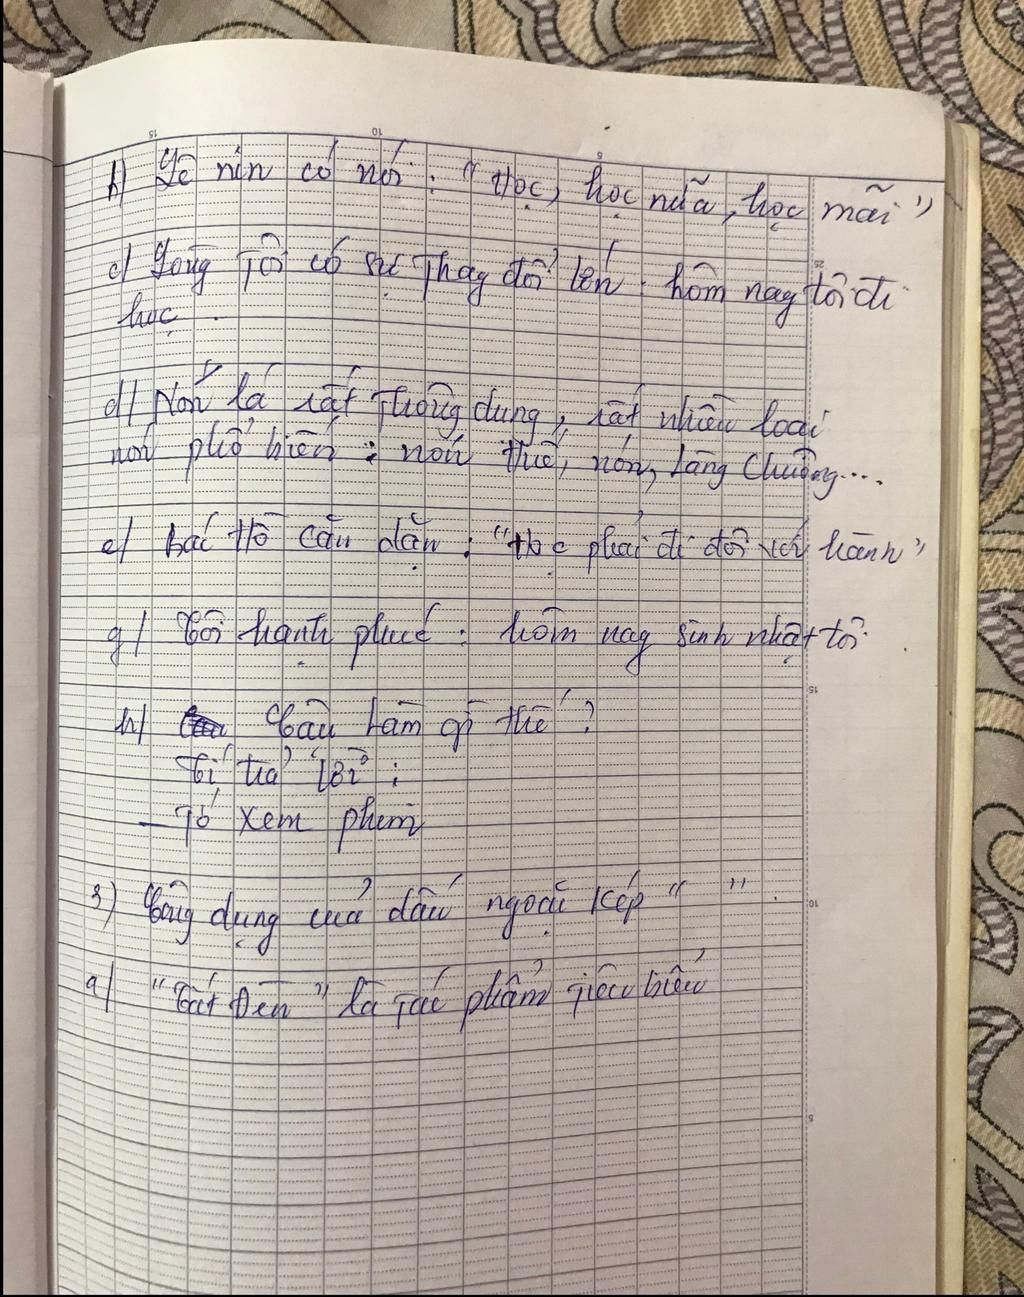 b) Lê nin có nói : " Học, học nữa, học mãi "
c) Lòng Tôi có sự Thay đổi lớn : hôm nay tôi đi
học .
d) Nón lá rất Thông dung, rất nhiều loại
nón phổ biến : nón Huế, nón, làng Chuông....
e) Bác Hồ căn dặn : "Học phải đi đôi với hành"
g) Tôi hạnh phúc : hôm nay sinh nhật tôi.
h) Cậu Làm gì thế ?
Tí trả lời :
- Tớ xem phim
3) Công dụng của dấu ngoặc kép " " .
a) " Tắt Đèn " là Tác phẩm Tiêu biểu
15
10
5
20
15
10
5